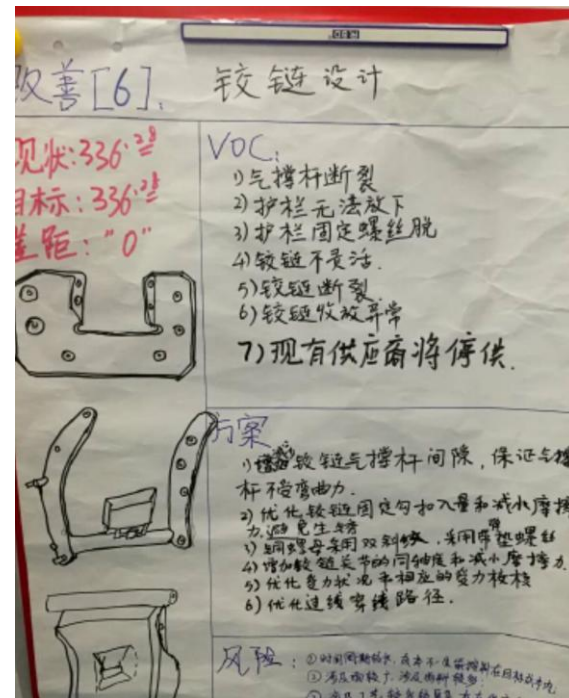 改善[6]. 铰链设计
现状:336.28
目标:336.28
差距:"0"
VOC:
1)气撑杆断裂
2)护栏无法放下
3)护栏固定螺丝脱
4)铰链不灵活.
5)铰链断裂.
6)铰链收放异常
7)现有供应商将停供.
方案
铰链气撑杆间隙,保证气撑
杆不受弯曲力.
2)优化铰链固定勾扣入量和减小摩擦
力.避免生锈
3)铜螺母采用双斜纹,采用带垫螺丝
4)增加铰链关节的同轴度和减小摩擦力.
5)优化受力状况 相应的受力校核
6)优化过线穿线路径.
风险: